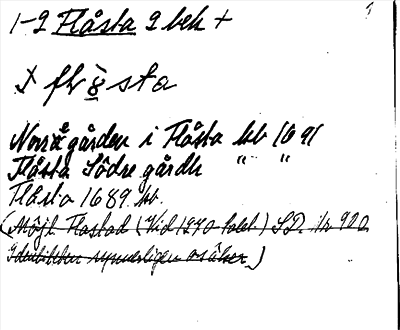 1-2 Flåsta 2 beb +
flr s ta
Norrgården i Flåsta kb 1691
Flåsta Södre gårdh " "
Flåsta 1689. kb.
(Möjl. Flastad (Vid 1270-talet) SD. 1: 920
Identiteten synnerligen osäker.)